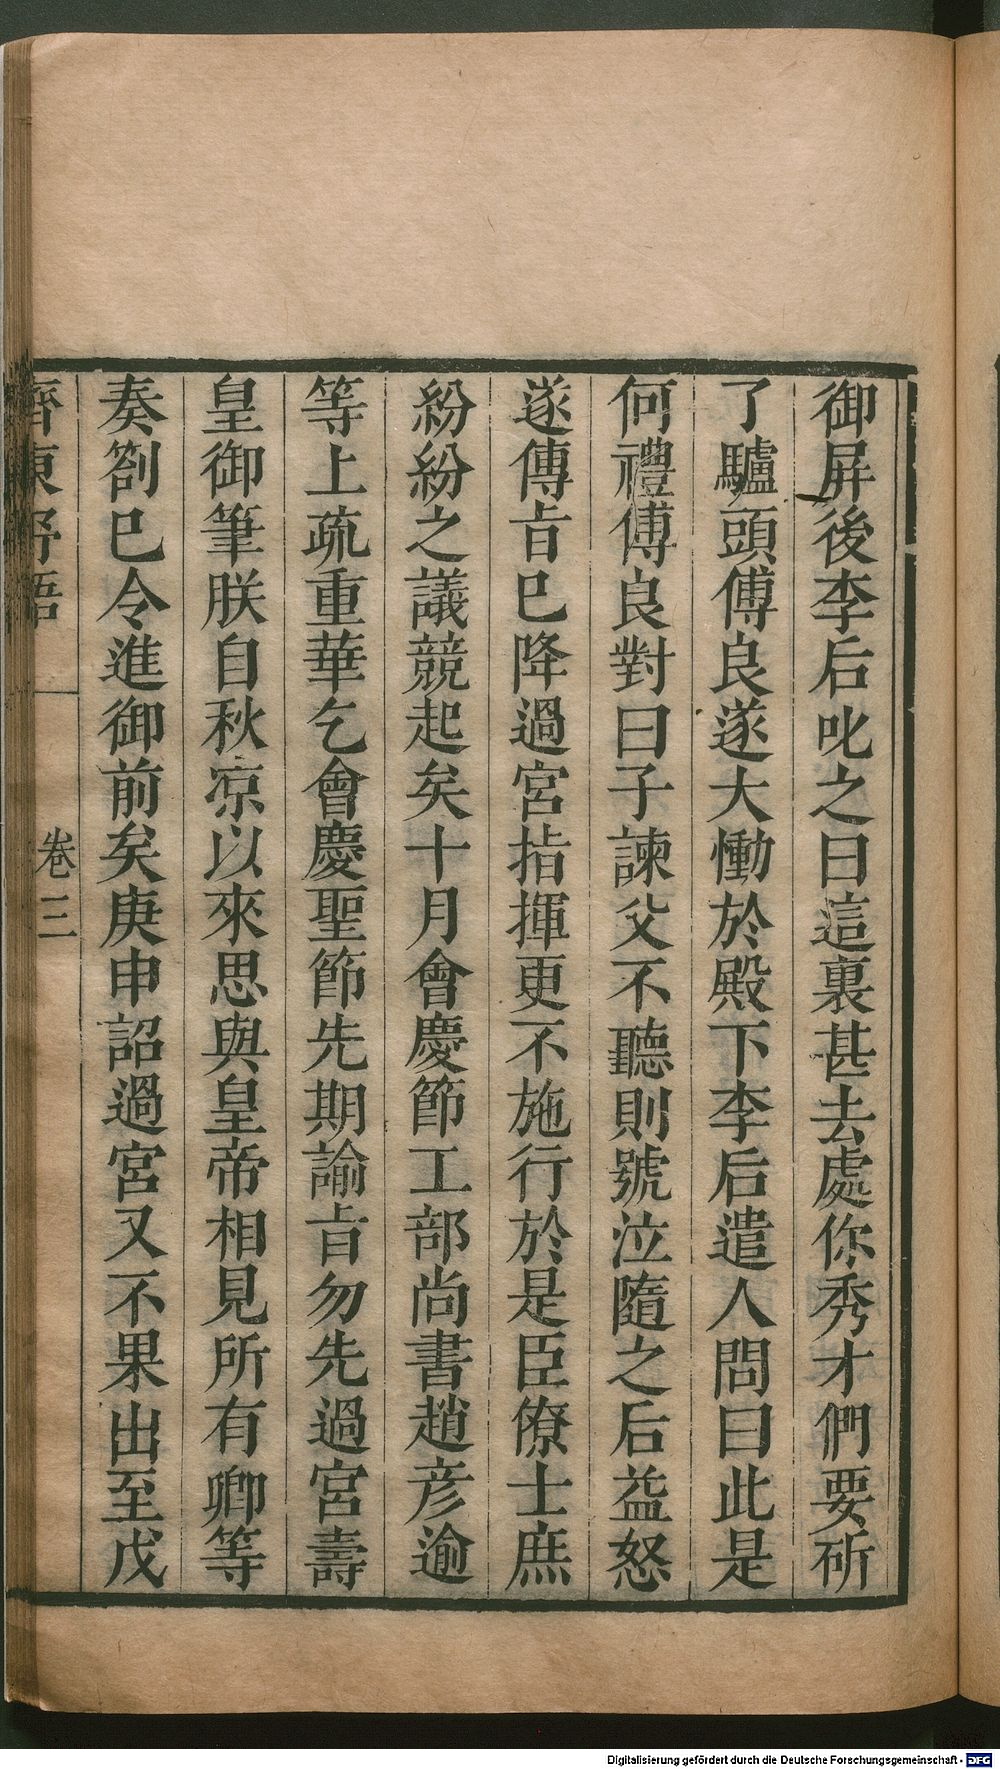 御屏後李后叱之曰這裏甚去處你秀才們要斫
了驢頭傅良遂大慟於殿下李后遣人問曰此是
何禮傅良對曰子諫父不聽則號泣隨之后益怒
遂傳㫖已降過宮指揮更不施行於是臣僚士庶
紛紛之議競起矣十月會慶節工部尚書趙彦逾
等上疏重華乞會慶聖節先期諭㫖勿先過宮壽
皇御筆朕自秋凉以來思與皇帝相見所有卿等
奏劄已令進御前矣庚申詔過宮又不果出至戊
齊東野語 卷三
Digitalisierung gefördert durch die Deutsche Forschungsgemeinschaft - DFG